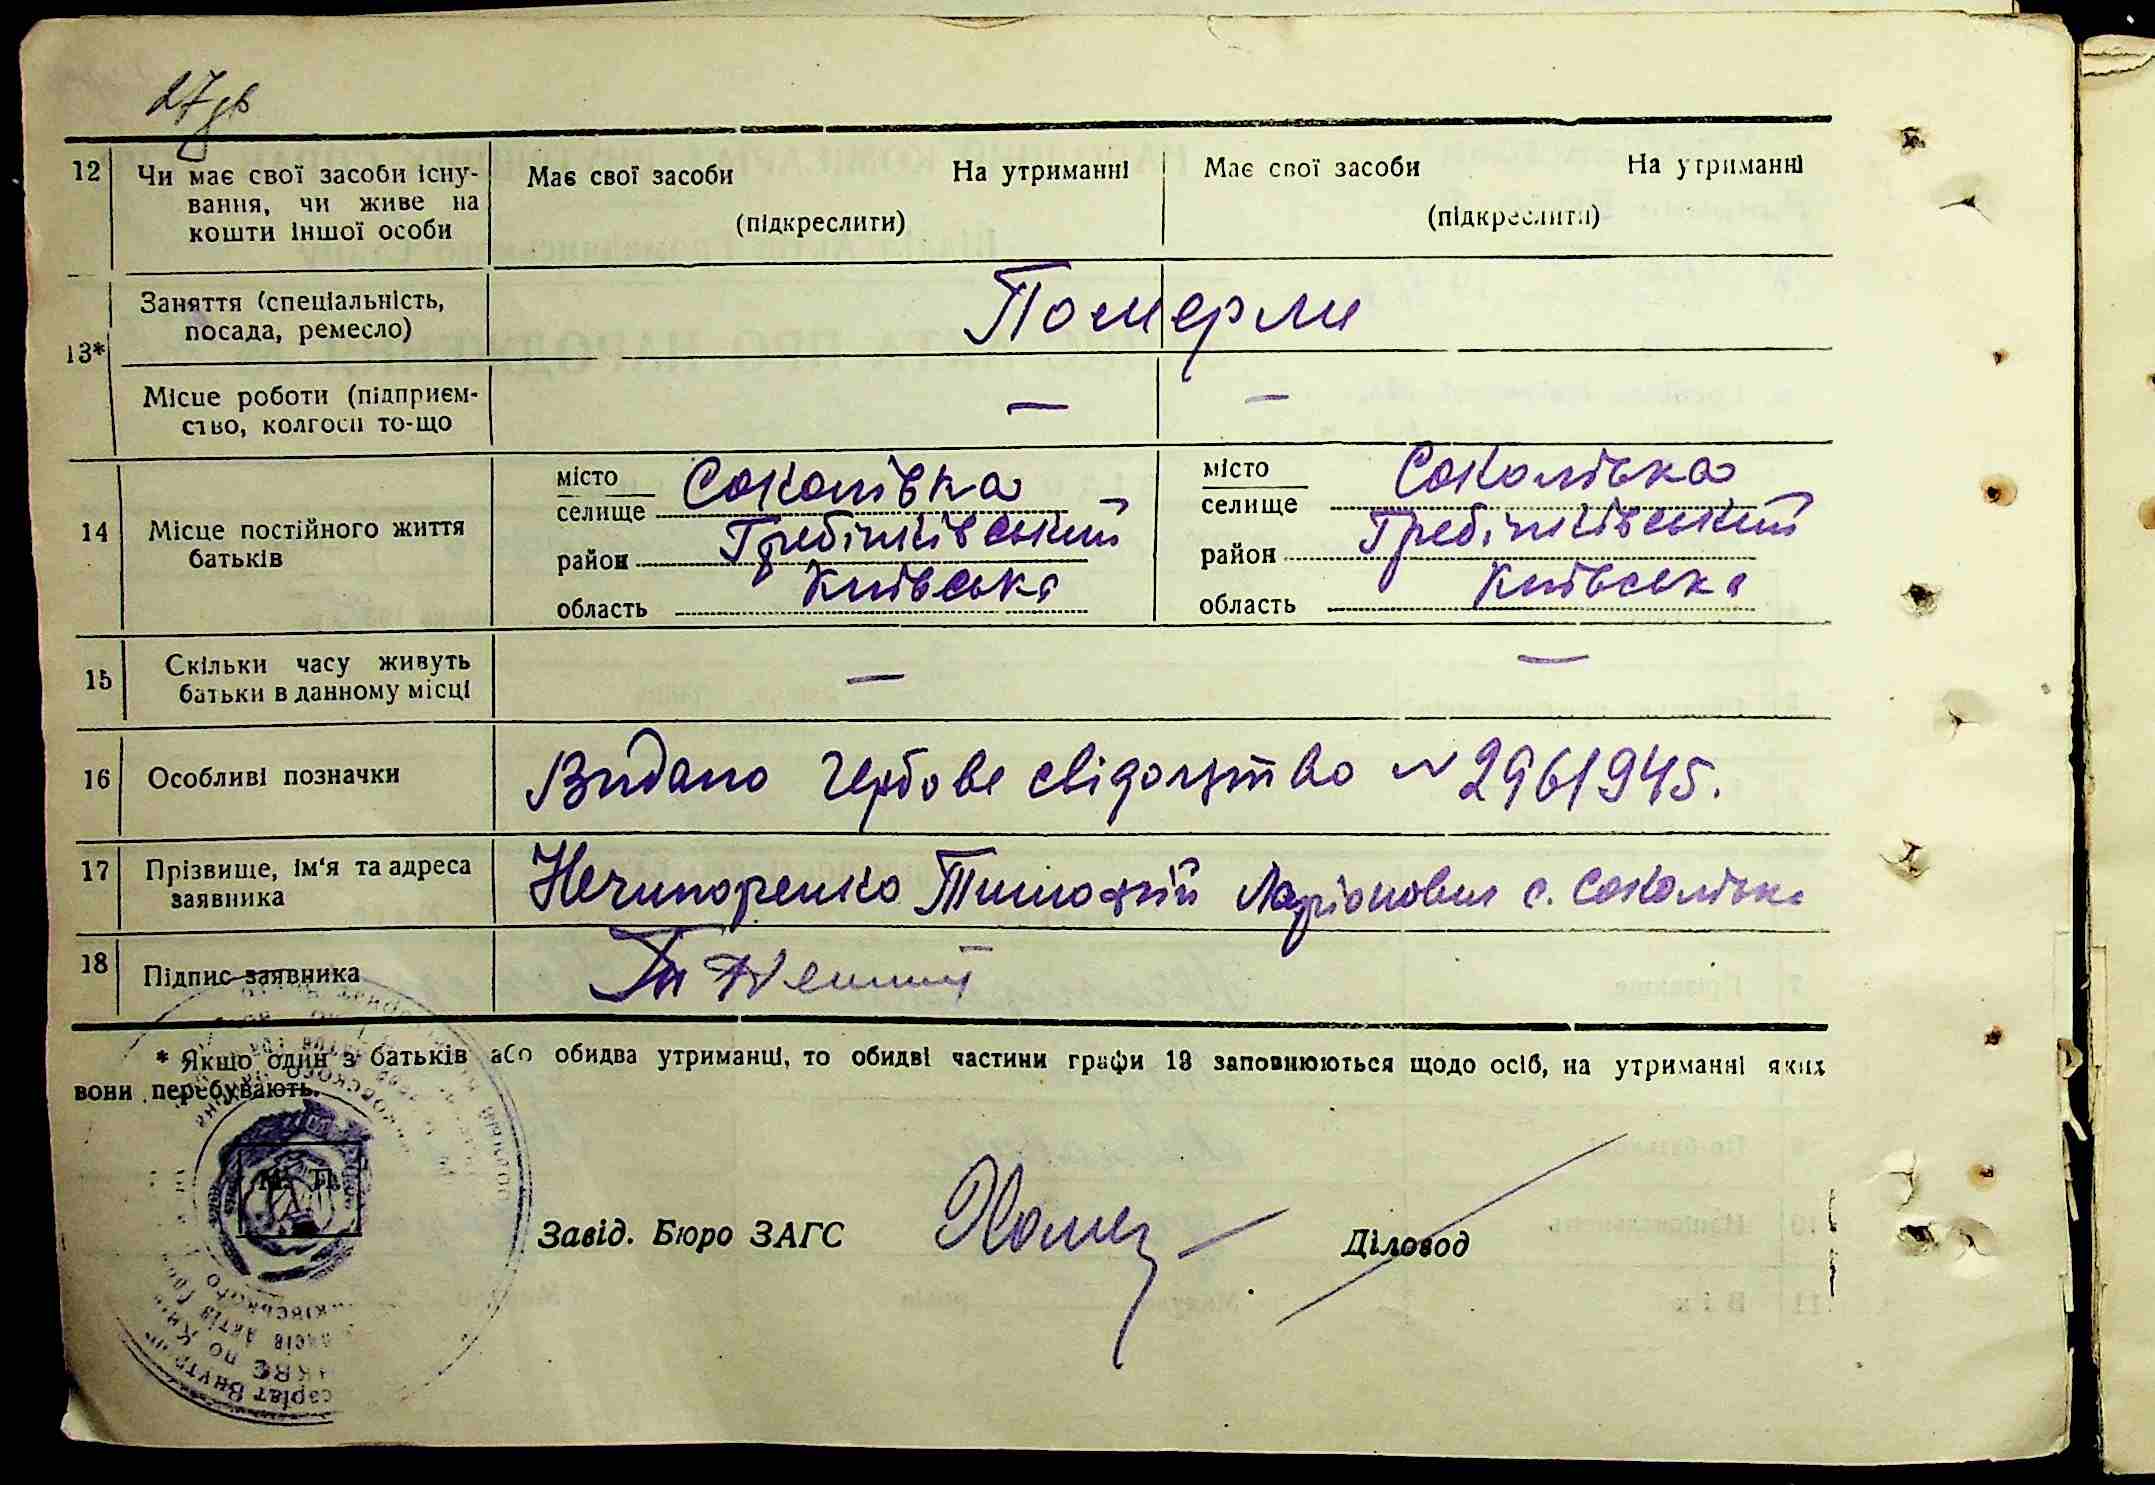 27
12 Чи має свої засоби існу- Має свої засоби На утриманні Має свої засоби На утриманні
вання, чи живе на (підкреслити) (підкреслити)
кошти іншої особи
13* Заняття (спеціальність, Померли
посада, ремесло)
Місце роботи (підприєм- — —
ство, колгосп то-що
14 Місце постійного життя батьків місто Соколівка місто Соколівка
селище селище
район Гребінківський район Гребінківський
область Київська область Київська
15 Скільки часу живуть — —
батьки в данному місці
16 Особливі позначки Видано гербове свідоцтво № 2961945.
17 Прізвище, ім'я та адреса Нечипоренко Тимофій Ларіонович с. Соколівка
заявника
18 Підпис заявника
* Якщо один з батьків або обидва утриманці, то обидві частини графи 13 заповнюються щодо осіб, на утриманні яких
вони перебувають.
М. П.
Завід. Бюро ЗАГС Діловод